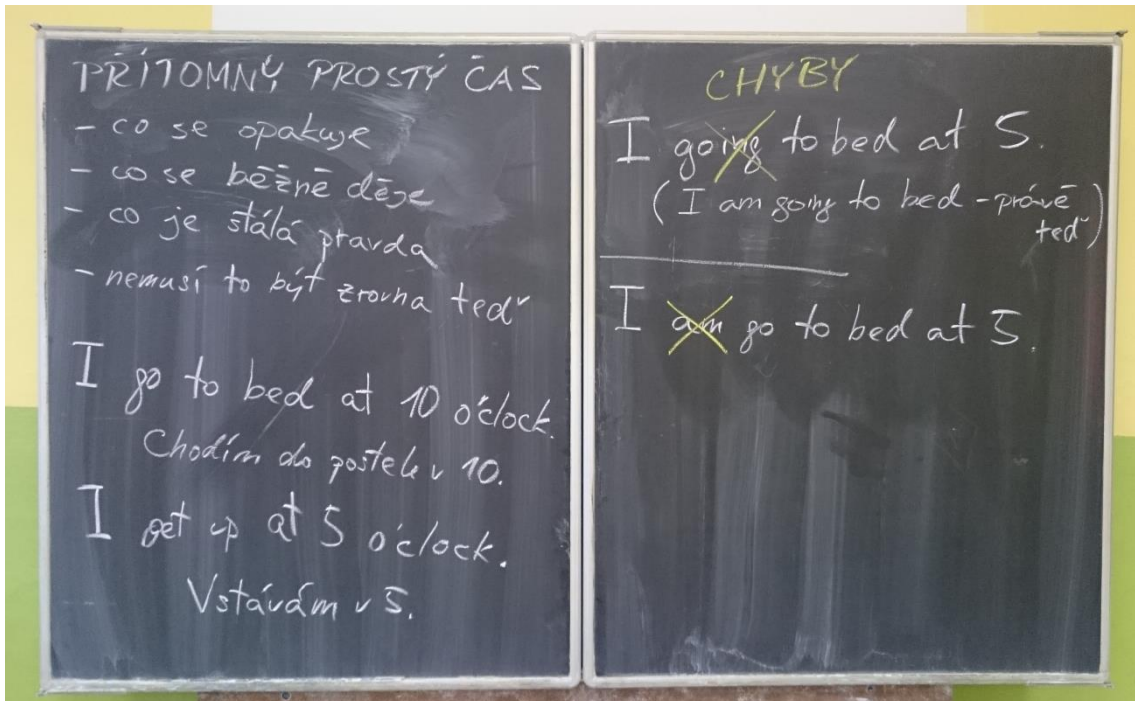 PŘÍTOMNÝ PROSTÝ ČAS
- co se opakuje
- co se běžně děje
- co je stálá pravda
- nemusí to být zrovna teď
I go to bed at 10 o'clock.
Chodím do postele v 10.
I get up at 5 o'clock.
Vstávám v 5.
CHYBY
I going to bed at 5.
(I am going to bed - právě
teď)
I am go to bed at 5.